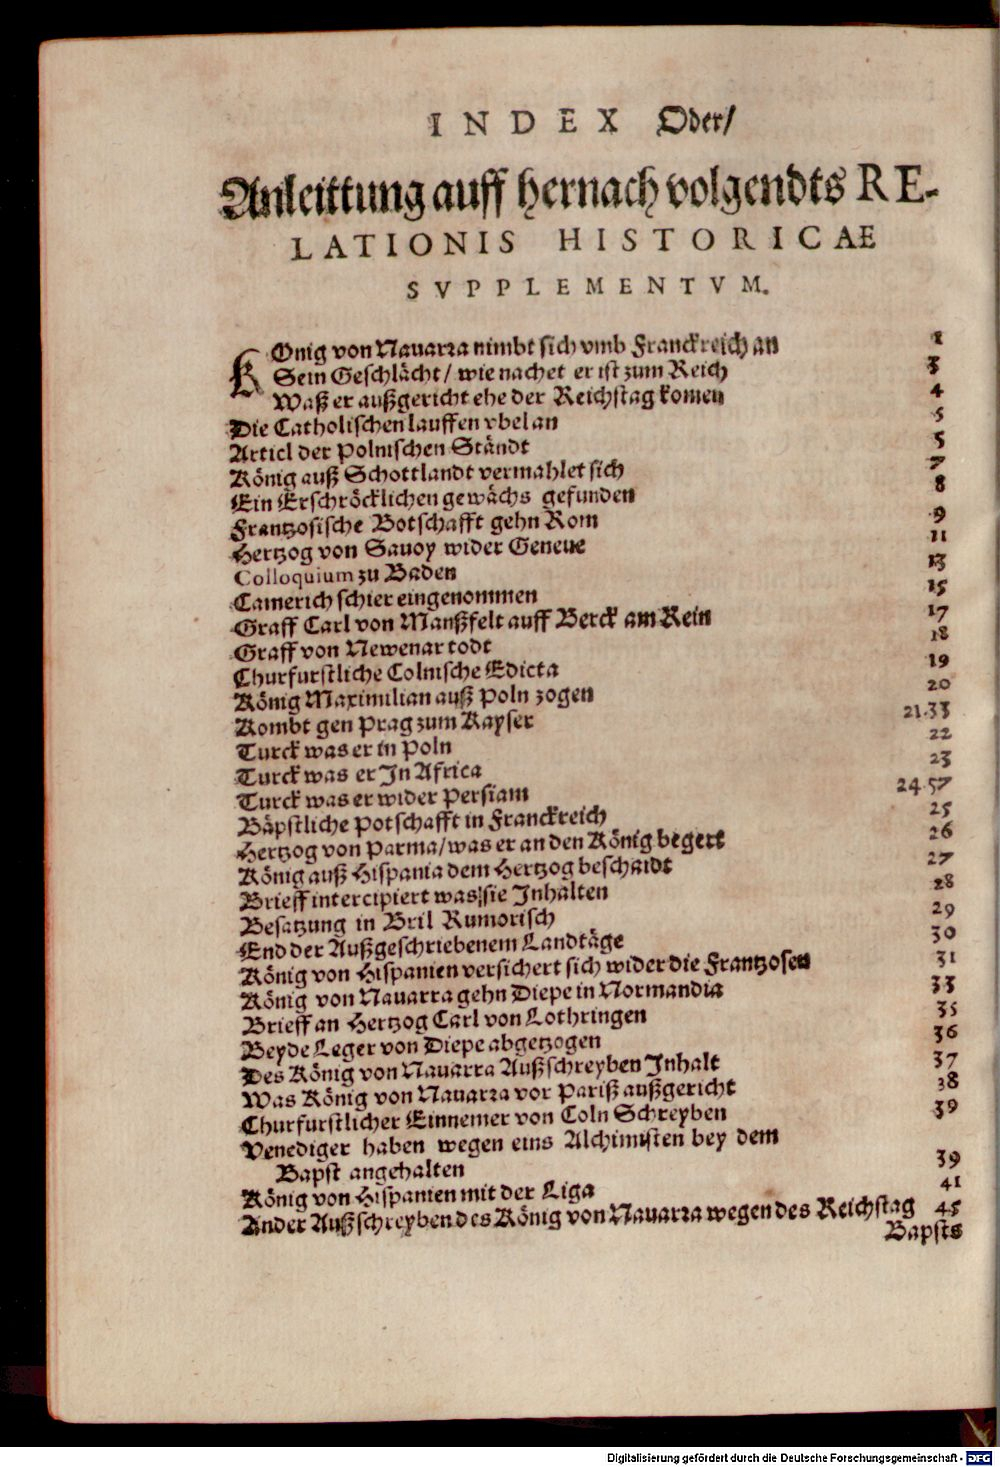 INDEX Oder/
Anleittung auff hernach volgendts RE-
LATIONIS HISTORICAE
SVPPLEMENTVM.
KOnig von Nauarra nimbt sich vmb Franckreich an 1
Sein Geschlächt/ wie nachet er ist zum Reich 3
Waß er außgericht ehe der Reichstag komen 4
Die Catholischen lauffen vbel an 5
Articl der Polnischen Ständt 5
König auß Schottlandt vermahlet sich 7
Ein Erschröcklichen gewächs gefunden 8
Frantzosische Botschafft gehn Rom 9
Hertzog von Sauoy wider Geneue 11
Colloquium zu Baden 13
Camerich schier eingenommen 15
Graff Carl von Manßfelt auff Berck am Rein 17
Graff von Newenar todt 18
Churfurstliche Colnische Edicta 19
König Maximilian auß Poln zogen 20
Kombt gen Prag zum Kayser 21.33
Turck was er in Poln 22
Turck was er In Africa 23
Turck was er wider Persiam 24.57
Bäpstliche Potschafft in Franckreich 25
Hertzog von Parma/ was er an den König begert 26
König auß Hispania dem Hertzog beschaidt 27
Brieff intercipiert was sie Inhalten 28
Besatzung in Bril Rumorisch 29
End der Außgeschriebenem Landtäge 30
König von Hispanien versichert sich wider die Frantzosen 31
König von Nauarra gehn Diepe in Normandia 33
Brieff an Hertzog Carl von Lothringen 35
Beyde Leger von Diepe abgetzogen 36
Des König von Nauarra Außschreyben Inhalt 37
Was König von Nauarra vor Pariß außgericht 38
Churfurstlicher Einnemer von Coln Schreyben 39
Venediger haben wegen eins Alchimisten bey dem
Bapst angehalten 39
König von Hispanien mit der Liga 41
Ander Außschreyben des König von Nauarra wegen des Reichstag 45
Bapsts
Digitalisierung gefördert durch die Deutsche Forschungsgemeinschaft - DFG